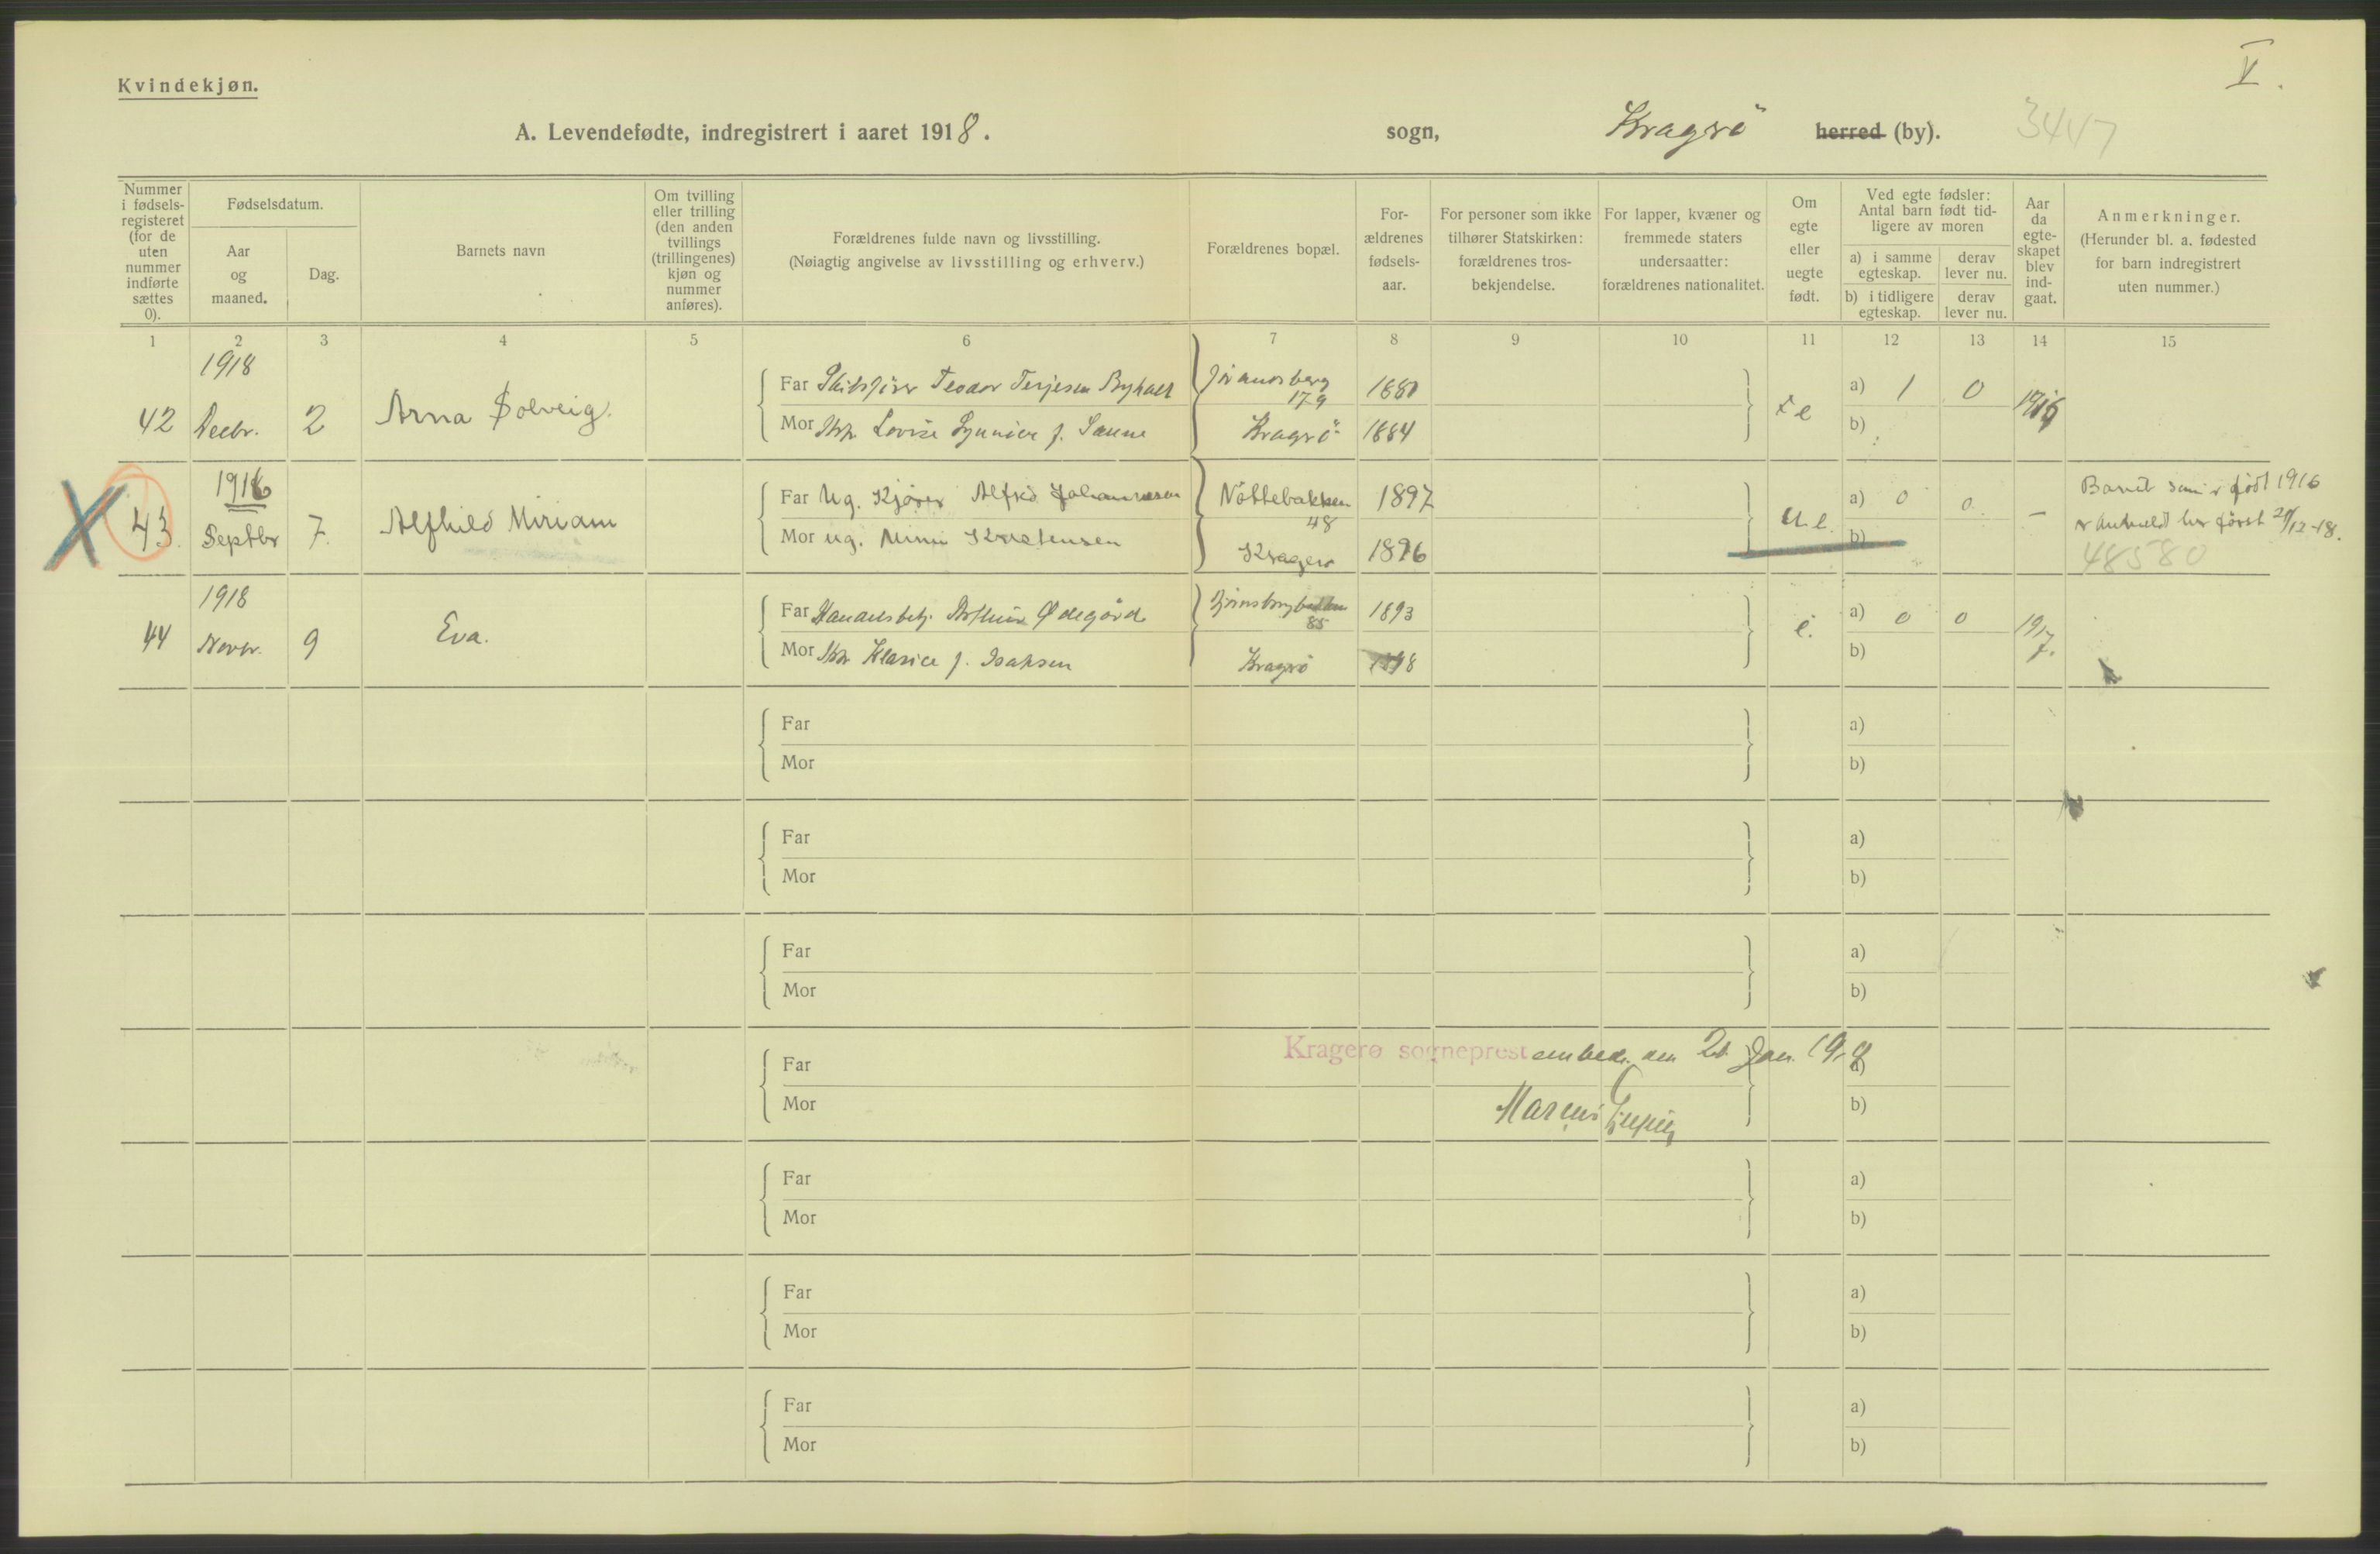 V.
Kvindekjøn.
A. Levendefødte, indregistrert i aaret 1918. sogn, Kragerö herred (by). 3447
Nummer i fødsels-registeret (for de uten nummer indførte sættes 0).
Fødselsdatum.
Aar og maaned.
Dag.
Barnets navn
Om tvilling eller trilling (den anden tvillings (trillingenes) kjøn og nummer anføres).
Forældrenes fulde navn og livsstilling.
(Nøiagtig angivelse av livsstilling og erhverv.)
Forældrenes bopæl.
For-ældrenes fødsels-aar.
For personer som ikke tilhører Statskirken: forældrenes tros-bekjendelse.
For lapper, kvæner og fremmede staters undersaatter: forældrenes nationalitet.
Om egte eller uegte født.
Ved egte fødsler: Antal barn født tid-ligere av moren
a) i samme egteskap.
derav lever nu.
b) i tidligere egteskap.
derav lever nu.
Aar da egte-skapet blev ind-gaat.
Anmerkninger.
(Herunder bl. a. fødested for barn indregistrert uten nummer.)
1 2 3 4 5 6 7 8 9 10 11 12 13 14 15
1918
42 Decbr. 2 Arna Solveig.
Far Teodor Terjesen 179 1880 a) 1 0 1916
Mor Lovise f. Kragerö 1884 b)
1916
43. Septbr 7. Alfhild Miriam
Far Ug. Alfred Johannesen Nöttebakken 48 1897 u.e. a) 0 0. –
Mor ug. Kragerø 1896 b)
Barnet som er født 1916
er anmeldt her først 21/12-18.
48580
1918
44 Novbr. 9 Eva.
Far Handelsbetj. Ødegård 85 1893 e. a) 0 0 1917.
Mor f. Isaksen Kragerö b)
Far a)
Mor b)
Far a)
Mor b)
Far a)
Mor b)
Kragerø sogneprestembede, den Jan. 19
Far a)
Marcus
Mor b)
Far a)
Mor b)
Far a)
Mor b)
Far a)
Mor b)